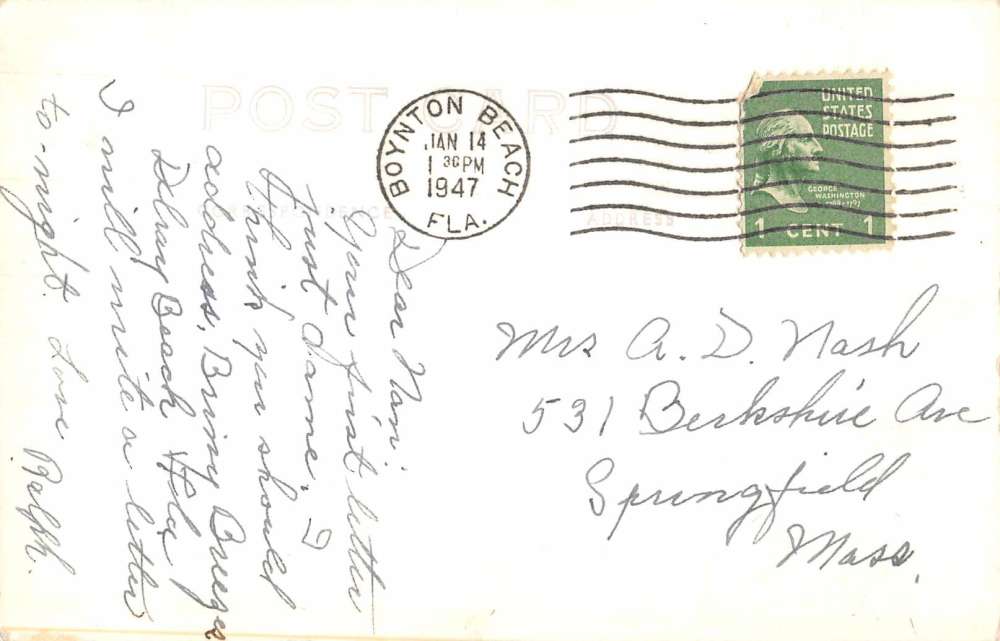 POST CARD
CORRESPONDENCE
ADDRESS
BOYNTON BEACH
JAN 14
1 30 PM
1947
FLA.
UNITED
STATES
POSTAGE
GEORGE
WASHINGTON
1789-1797
1 CENT 1
Dear Nan:
Your first letter
just came. I
think you should
address, Briny Breezes
Delray Beach Fla
I will write a letter
to-night. Love Ralph.
Mrs A. D. Nash
531 Berkshire Ave
Springfield
Mass.